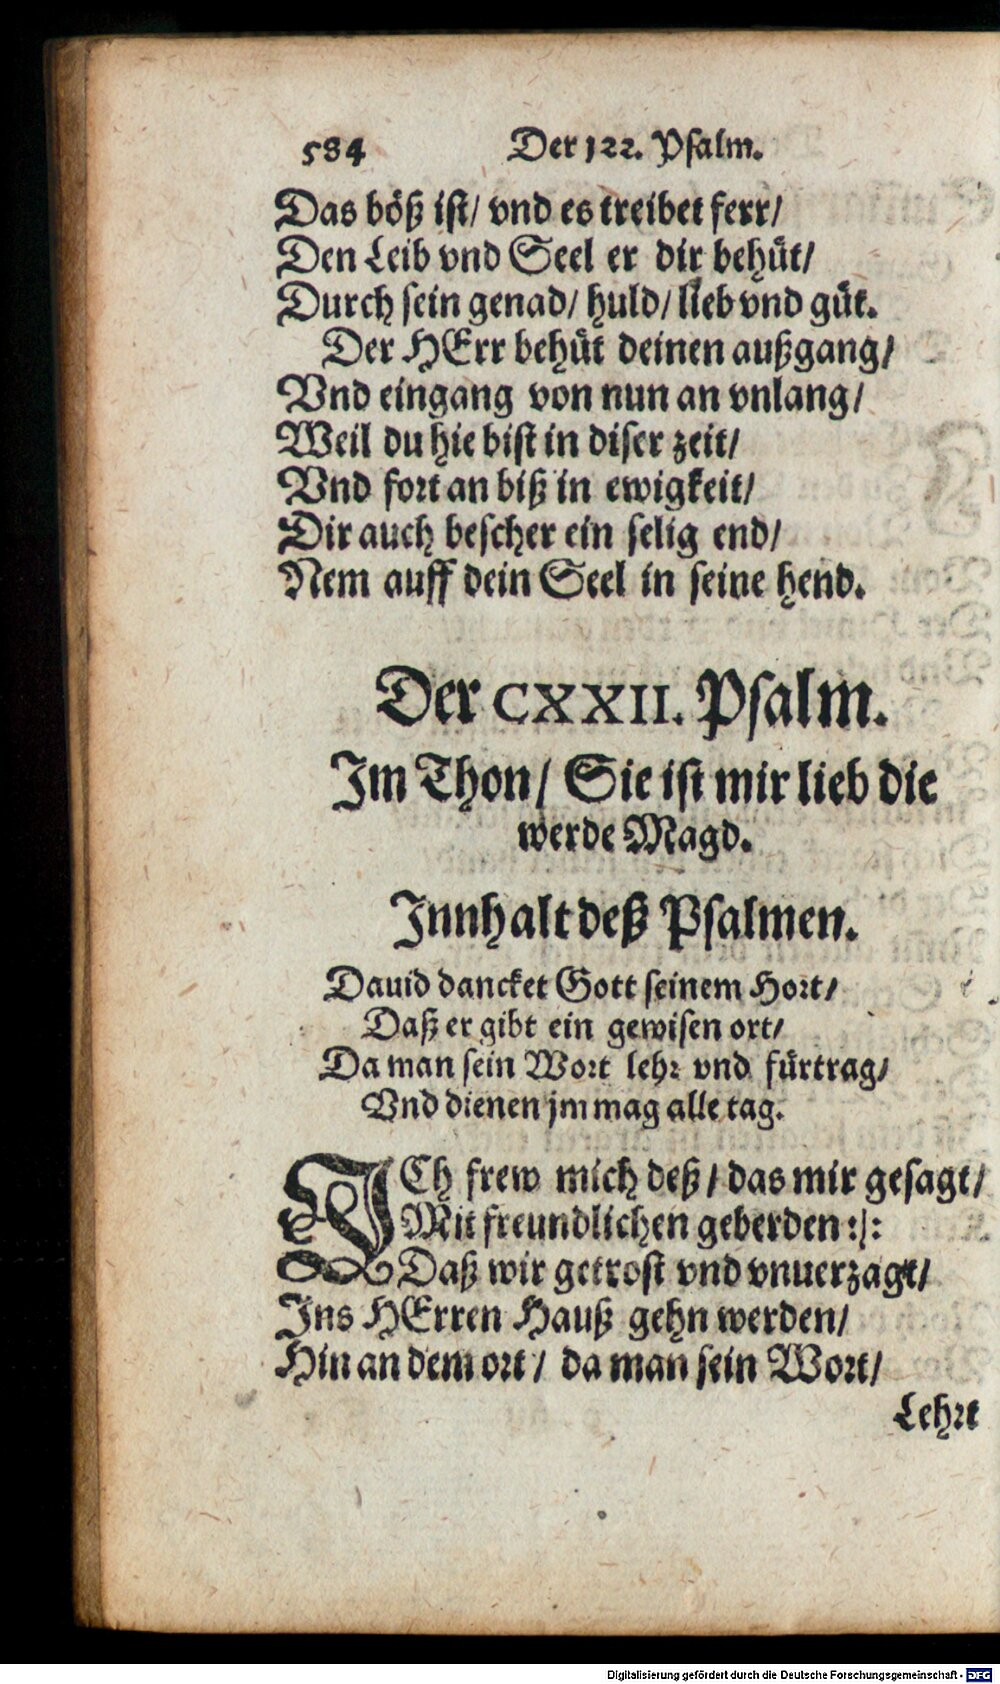 584 Der 122. Psalm.
Das böß ist/ vnd es treibet ferr/
Den Leib vnd Seel er dir behüt/
Durch sein genad/ huld/ lieb vnd güt.
Der HErr behüt deinen außgang/
Vnd eingang von nun an vnlang/
Weil du hie bist in diser zeit/
Vnd fort an biß in ewigkeit/
Dir auch bescher ein selig end/
Nem auff dein Seel in seine hend.
Der CXXII. Psalm.
Im Thon/ Sie ist mir lieb die
werde Magd.
Innhalt deß Psalmen.
Dauid dancket Gott seinem Hort/
Daß er gibt ein gewisen ort/
Da man sein Wort lehr vnd fürtrag/
Vnd dienen jm mag alle tag.
ICh frew mich deß/ das mir gesagt/
Mit freundlichen geberden :|:
Daß wir getrost vnd vnuerzagt/
Ins HErren Hauß gehn werden/
Hin an dem ort/ da man sein Wort/
Lehrt
Digitalisierung gefördert durch die Deutsche Forschungsgemeinschaft - DFG